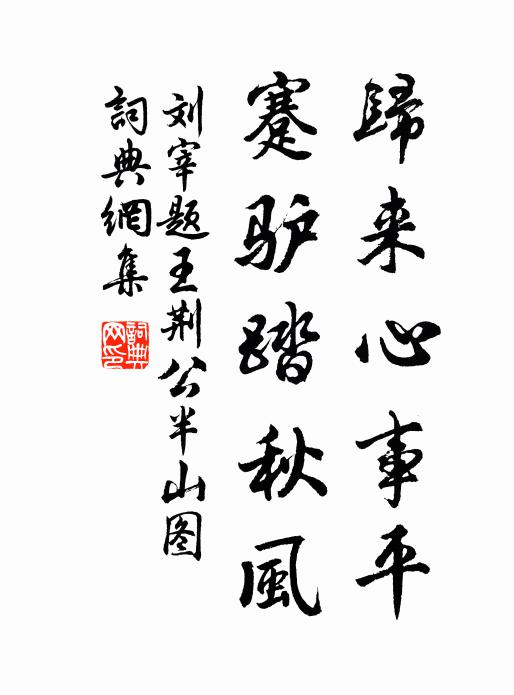 歸来心事平
蹇驴踏秋風
刘宰题王荆公半山图
詞典網集
詞典网印